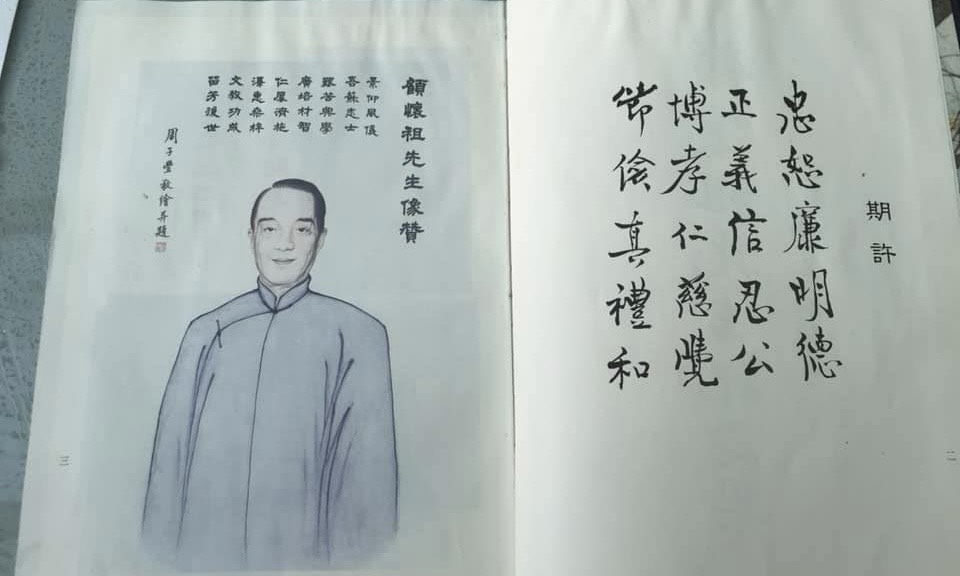 期許
忠恕廉明德
正義信忍公
博孝仁慈覺
節儉真禮和
二
懷祖先生像贊
景仰風儀
蘇志士
艱苦興學
廣培材智
仁厚濟施
澤惠桑梓
文教功成
留芳後世
周子豐敬繪并題
三